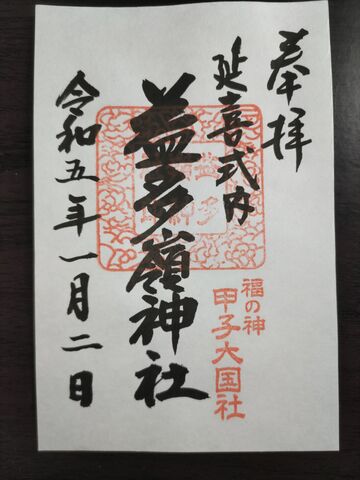 奉拝
延喜式内
福の神
甲子大国社
益多嶺神社
令和五年一月二日